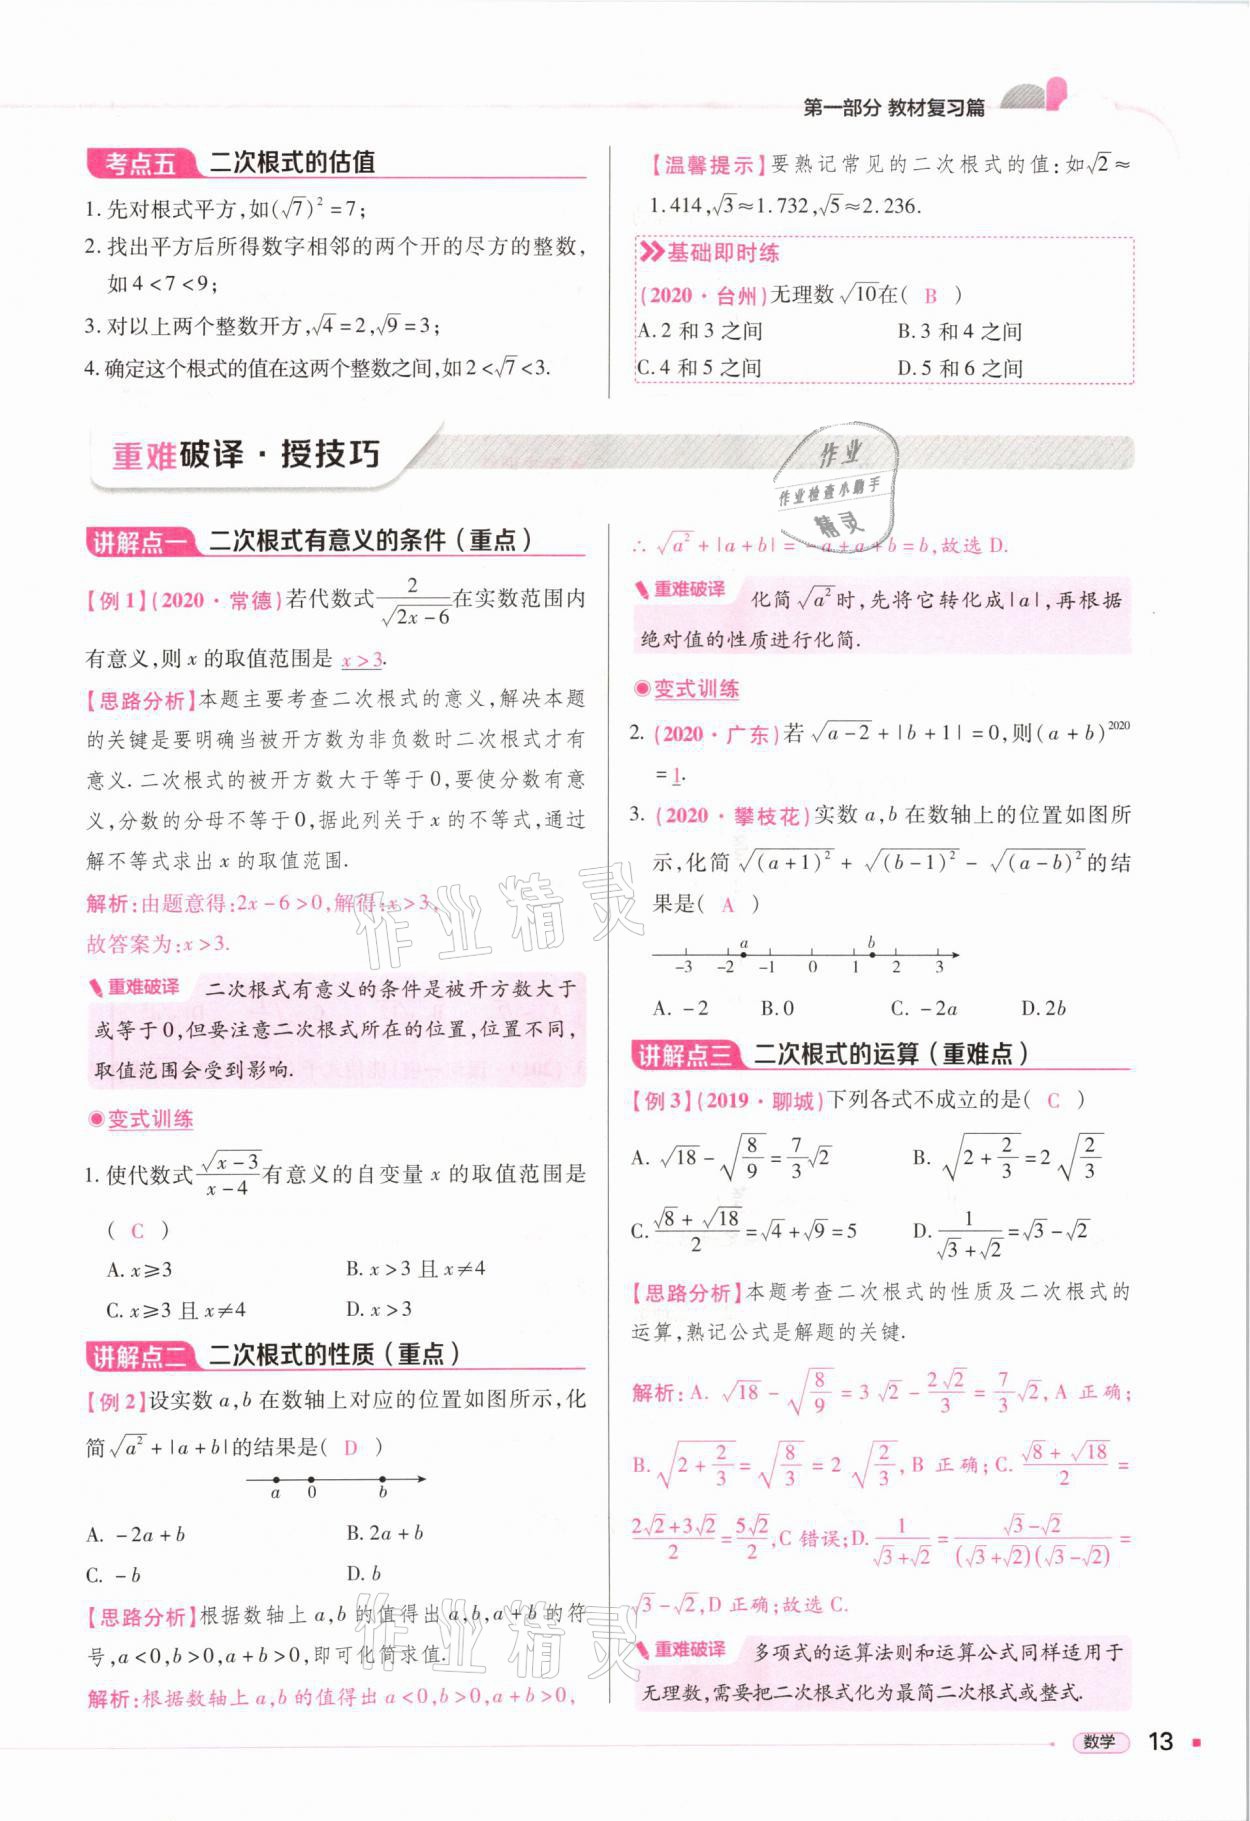 第一部分 教材复习篇
考点五 二次根式的估值
1. 先对根式平方,如(√7)²=7;
2. 找出平方后所得数字相邻的两个开的尽方的整数,
如4<7<9;
3. 对以上两个整数开方,√4=2,√9=3;
4. 确定这个根式的值在这两个整数之间,如2<√7<3.
【温馨提示】要熟记常见的二次根式的值:如√2≈
1.414,√3≈1.732,√5≈2.236.
基础即时练
(2020·台州)无理数√10在( B )
A.2和3之间 B.3和4之间
C.4和5之间 D.5和6之间
重难破译·授技巧
作业
作业检查小助手
精灵
讲解点一 二次根式有意义的条件(重点)
【例1】(2020·常德)若代数式2/√(2x-6)在实数范围内
有意义,则x的取值范围是 x>3.
【思路分析】本题主要考查二次根式的意义,解决本题
的关键是要明确当被开方数为非负数时二次根式才有
意义.二次根式的被开方数大于等于0,要使分数有意
义,分数的分母不等于0,据此列关于x的不等式,通过
解不等式求出x的取值范围.
解析:由题意得:2x-6>0,解得:x>3,
故答案为:x>3.
重难破译 二次根式有意义的条件是被开方数大于
或等于0,但要注意二次根式所在的位置,位置不同,
取值范围会受到影响.
变式训练
1. 使代数式√(x-3)/(x-4)有意义的自变量x的取值范围是
( C )
A. x≥3 B. x>3且x≠4
C. x≥3且x≠4 D. x>3
讲解点二 二次根式的性质(重点)
【例2】设实数a,b在数轴上对应的位置如图所示,化
简√a²+|a+b|的结果是( D )
a 0 b
A. -2a+b B. 2a+b
C. -b D. b
【思路分析】根据数轴上a,b的值得出a,b,a+b的符
号,a<0,b>0,a+b>0,即可化简求值.
解析:根据数轴上a,b的值得出a<0,b>0,a+b>0,
∴√a²+|a+b|=-a+a+b=b,故选D.
重难破译 化简√a²时,先将它转化成|a|,再根据
绝对值的性质进行化简.
变式训练
2. (2020·广东)若√(a-2)+|b+1|=0,则(a+b)²⁰²⁰
=1.
3. (2020·攀枝花)实数a,b在数轴上的位置如图所
示,化简√(a+1)²+√(b-1)²-√(a-b)²的结
果是( A )
a b
-3 -2 -1 0 1 2 3
A. -2 B. 0 C. -2a D. 2b
讲解点三 二次根式的运算(重难点)
【例3】(2019·聊城)下列各式不成立的是( C )
A. √18-√(8/9)=7/3√2 B. √(2+2/3)=2√(2/3)
C. (√8+√18)/2=√4+√9=5 D. 1/(√3+√2)=√3-√2
【思路分析】本题考查二次根式的性质及二次根式的
运算,熟记公式是解题的关键.
解析:A. √18-√(8/9)=3√2-2√2/3=7/3√2,A正确;
B. √(2+2/3)=√(8/3)=2√(2/3),B正确;C. (√8+√18)/2=
(2√2+3√2)/2=5√2/2,C错误;D. 1/(√3+√2)=(√3-√2)/((√3+√2)(√3-√2))=
√3-√2,D正确;故选C.
重难破译 多项式的运算法则和运算公式同样适用于
无理数,需要把二次根式化为最简二次根式或整式.
作业精灵
作业精灵
数学 13